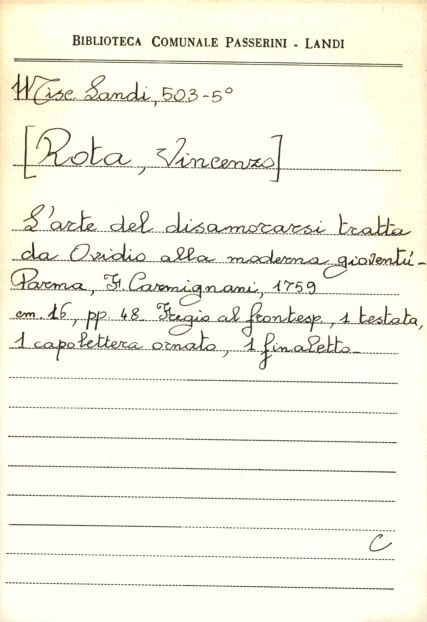 BIBLIOTECA COMUNALE PASSERINI - LANDI
Misc. Landi, 503-5°
[Rota, Vincenzo]
L'arte del disamorarsi tratta
da Ovidio alla moderna gioventú-
Parma, F. Carmignani, 1759
cm. 16, pp. 48. Fregio al frontesp., 1 testata,
1 capolettera ornato, 1 finaletto-
C